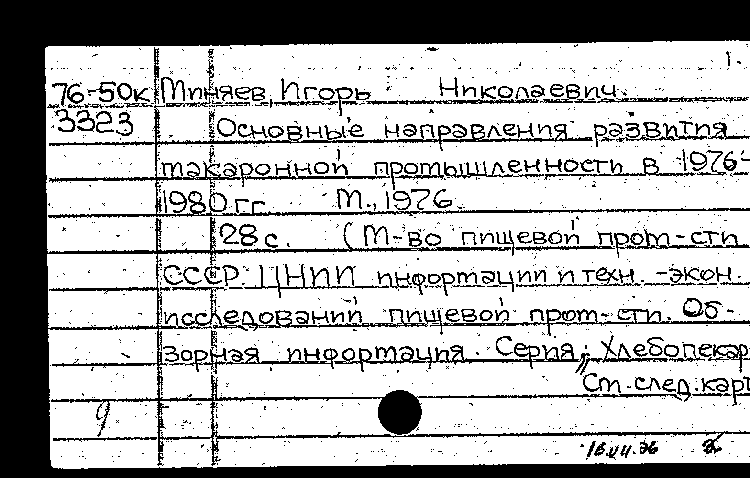 1.
76-50к Миняев, Игорь Николаевич.
3323 Основные направления развития
макаронной промышленности в 1976-
1980 гг. М., 1976.
28 с. (М-во пищевой пром-сти
СССР. ЦНИИ информации и техн.-экон.
исследований пищевой пром-сти. Об-
зорная информация. Серия: Хлебопекар
См. след. карт
9